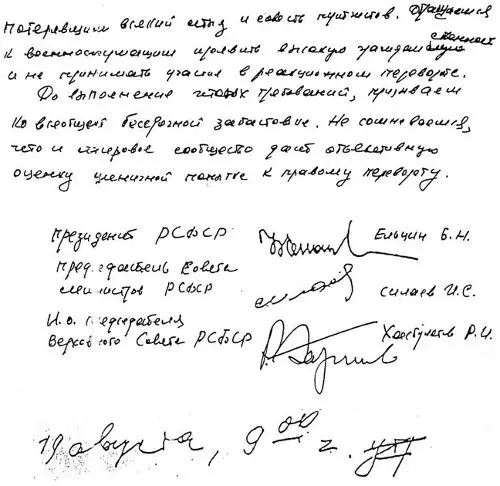 потерявшим всякий стыд и совесть путчистов. Обращаемся
к военнослужащим проявить высокую гражданственность
и не принимать участия в реакционном перевороте.
До выполнения этих требований, призываем
ко всеобщей бессрочной забастовке. Не сомневаемся,
что и мировое сообщество даст объективную
оценку циничной попытке к правому перевороту.
Президент РСФСР Ельцин Б.Н.
Председатель Совета
министров РСФСР Силаев И.С.
И.о. председателя
Верховного Совета РСФСР Хасбулатов Р.И.
19 августа, 9 00 г. утр